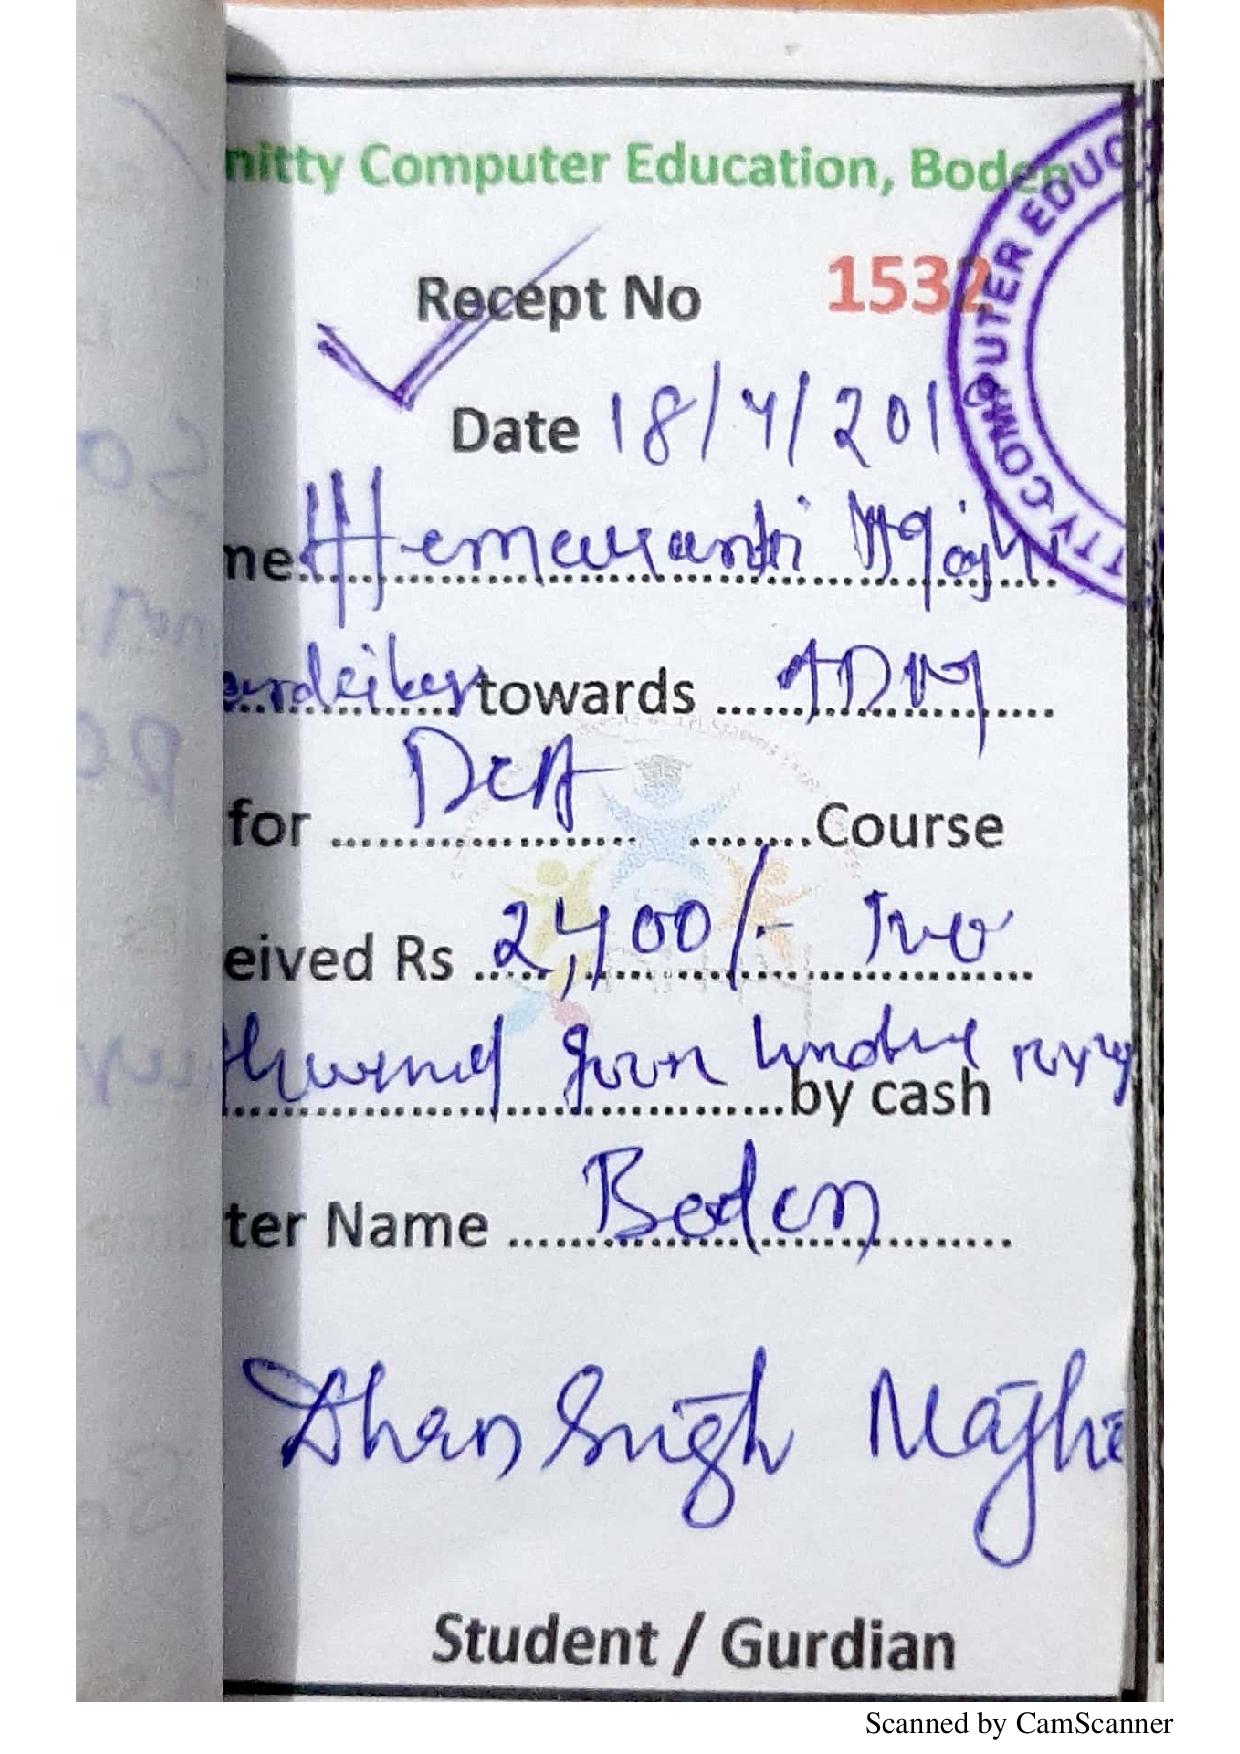 nitty Computer Education, Boden
Recept No 1532
Date 18/4/201
me
towards ADM
for DCA Course
eived Rs 2,400/- Two
Four by cash
ter Name Boden
Dhan Singh Majhi
Student / Gurdian
TTY COMPUTER EDUC
Scanned by CamScanner